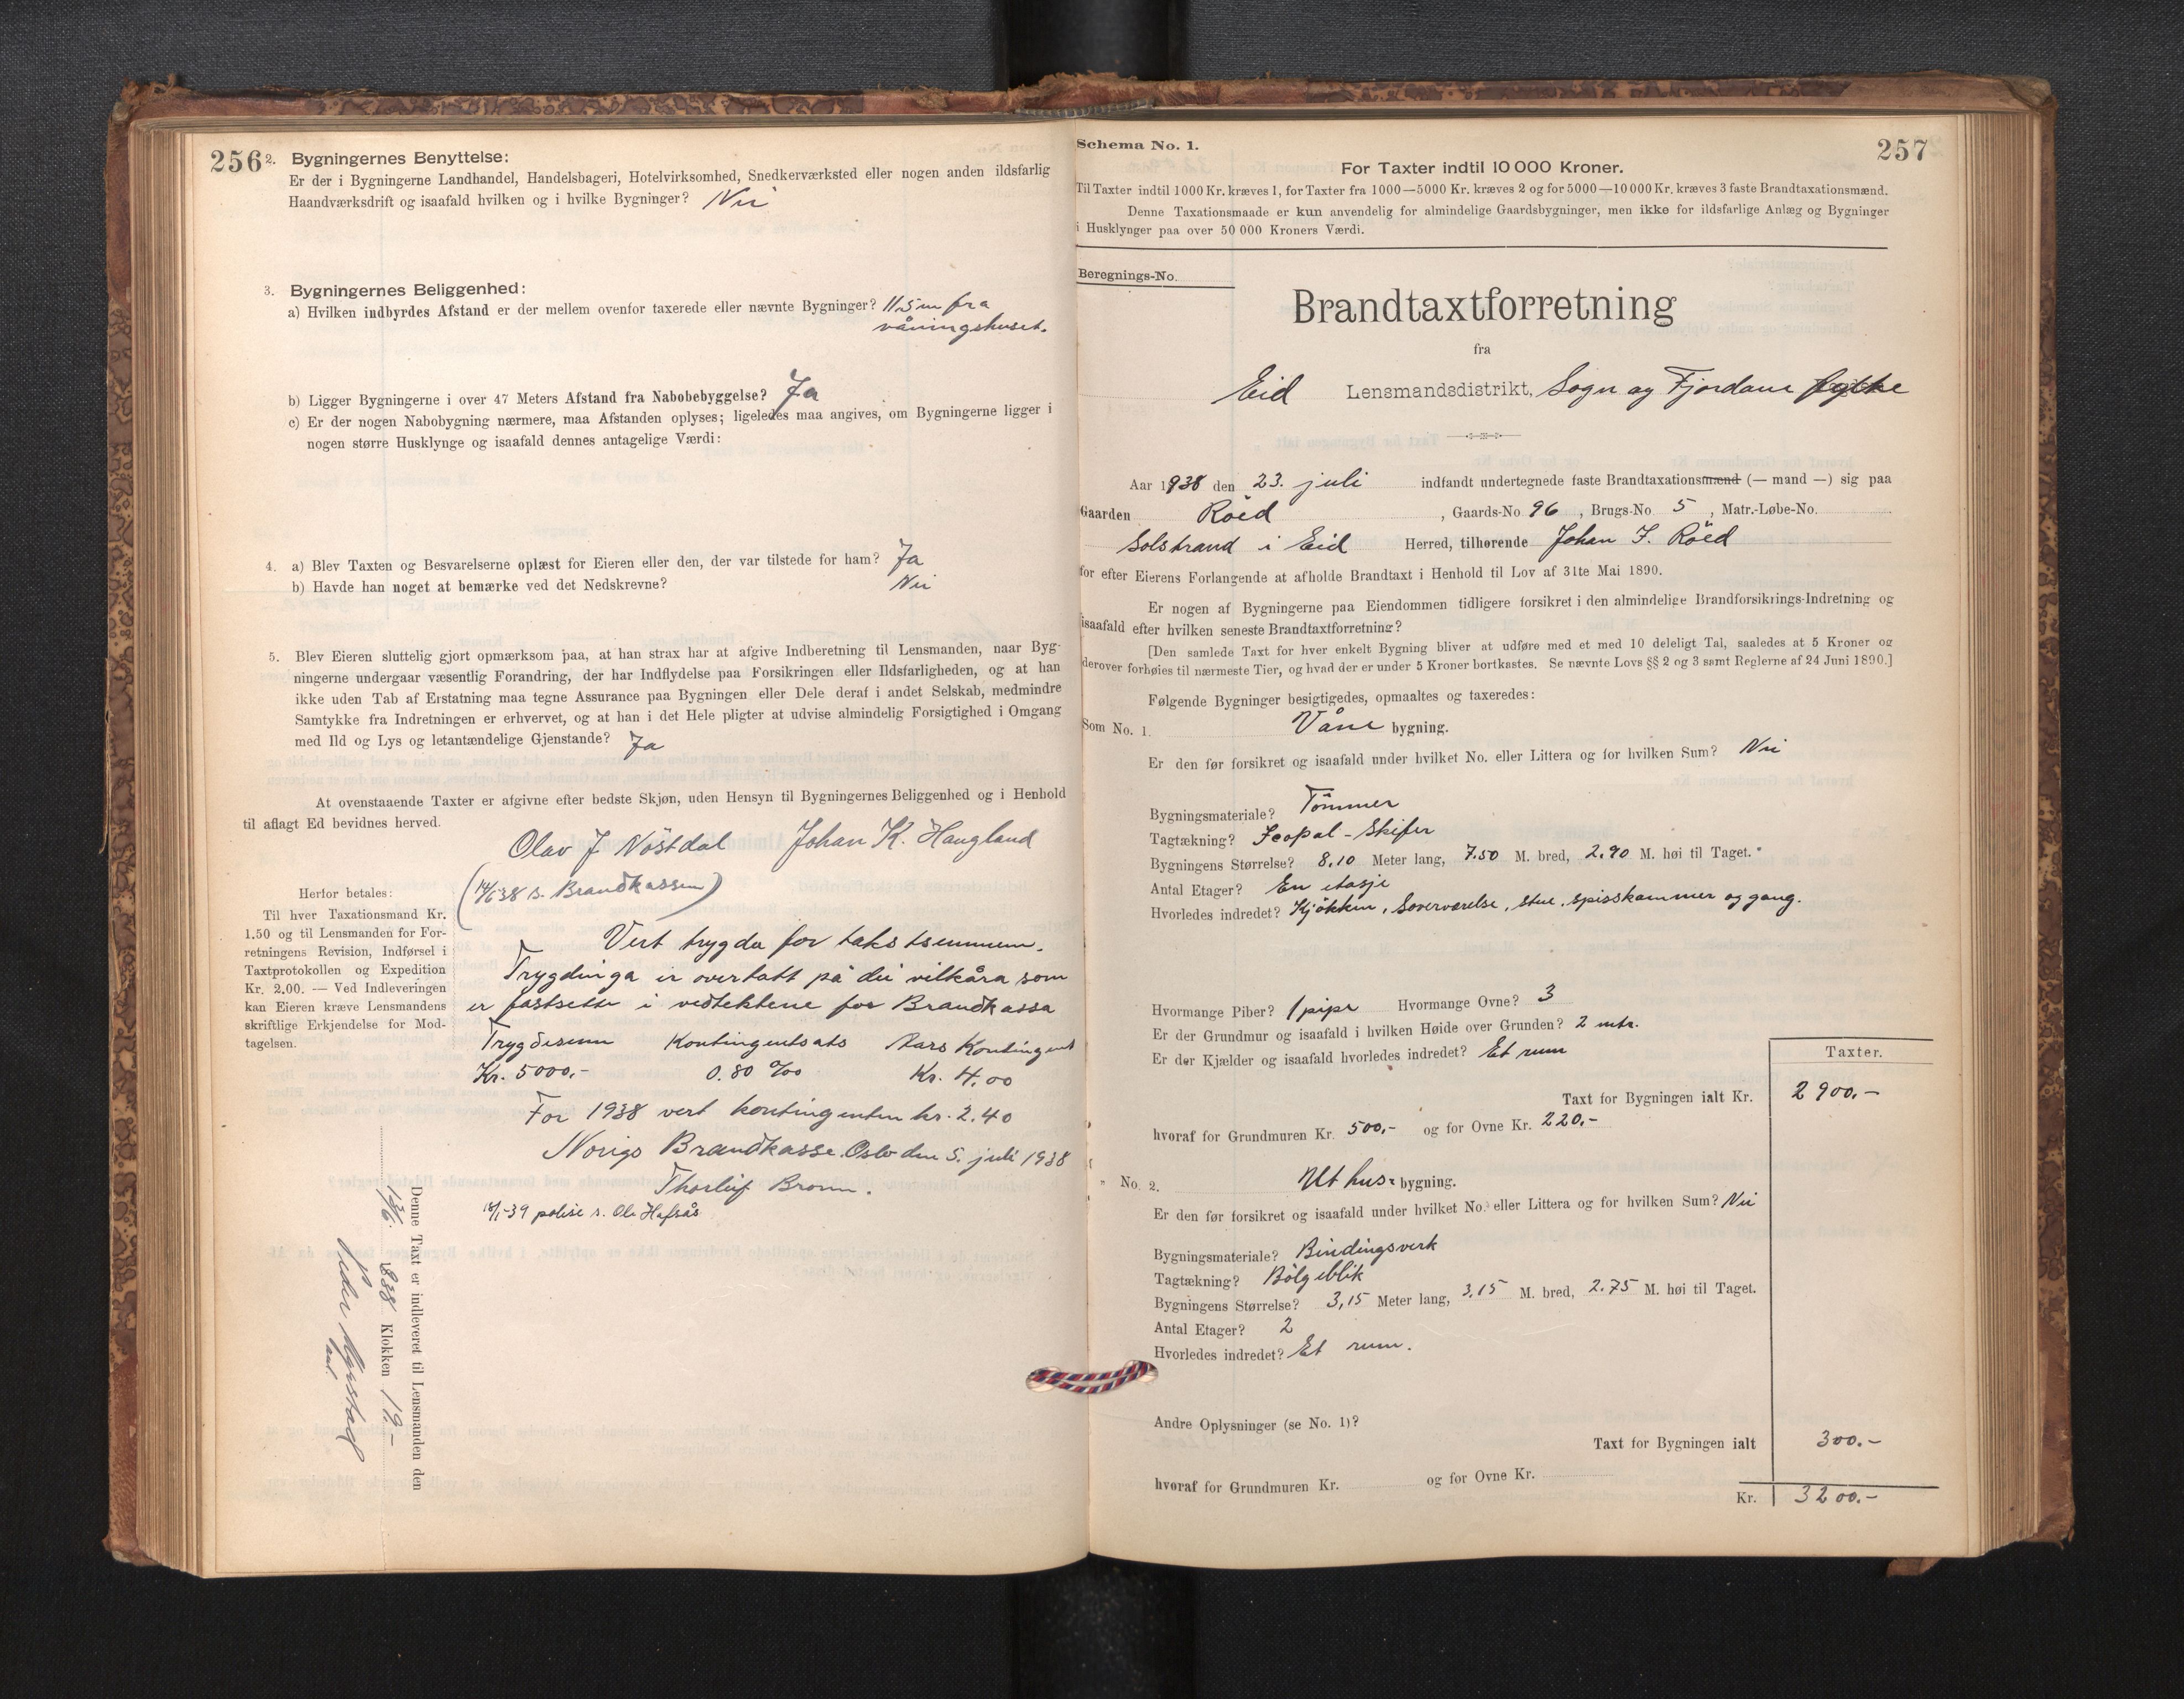 256
2. Bygningernes Benyttelse:
Er der i Bygningerne Landhandel, Handelsbageri, Hotelvirksomhed, Snedkerværksted eller nogen anden ildsfarlig
Haandværksdrift og isaafald hvilken og i hvilke Bygninger? Nei
3. Bygningernes Beliggenhed:
a) Hvilken indbyrdes Afstand er der mellem ovenfor taxerede eller nævnte Bygninger? 115 m fra
våningshuset.
b) Ligger Bygningerne i over 47 Meters Afstand fra Nabobebyggelse? Ja
c) Er der nogen Nabobygning nærmere, maa Afstanden oplyses; ligeledes maa angives, om Bygningerne ligger i
nogen større Husklynge og isaafald dennes antagelige Værdi:
4. a) Blev Taxten og Besvarelserne oplæst for Eieren eller den, der var tilstede for ham? Ja
b) Havde han noget at bemærke ved det Nedskrevne? Nei
5. Blev Eieren sluttelig gjort opmærksom paa, at han strax har at afgive Indberetning til Lensmanden, naar Byg-
ningerne undergaar væsentlig Forandring, der har Indflydelse paa Forsikringen eller Ildsfarligheden, og at han
ikke uden Tab af Erstatning maa tegne Assurance paa Bygningen eller Dele deraf i andet Selskab, medmindre
Samtykke fra Indretningen er erhvervet, og at han i det Hele pligter at udvise almindelig Forsigtighed i Omgang
med Ild og Lys og letantændelige Gjenstande? Ja
At ovenstaaende Taxter er afgivne efter bedste Skjøn, uden Hensyn til Bygningernes Beliggenhed og i Henhold
til aflagt Ed bevidnes herved.
Olav J. Nöstdal Johan K. Haugland
(14/6 38 s. Brandkassen)
Herfor betales:
Til hver Taxationsmand Kr.
1.50 og til Lensmanden for For-
retningens Revision, Indførsel i
Taxtprotokollen og Expedition
Kr. 2.00. — Ved Indleveringen
kan Eieren kræve Lensmandens
skriftlige Erkjendelse for Mod-
tagelsen.
Vert trygda for takstsummen.
Trygdinga er overtatt på dei vilkåra som
er fastsette i vedtektene for Brandkassa
Trygdesum Kontingentsats Aars Kontingent
Kr. 5000.- 0.80 ‰ Kr. 4.00
For 1938 vert kontingenten kr. 2.40
Norigs Brandkasse. Oslo den 5. juli 1938
Thorleif Bronn.
18/1-39 polise s. Ole Hafsås
Denne Taxt er indleveret til Lensmanden den
13/6 1838 Klokken 19.-
257
Schema No. 1.
For Taxter indtil 10 000 Kroner.
Til Taxter indtil 1000 Kr. kræves 1, for Taxter fra 1000—5000 Kr. kræves 2 og for 5000—10 000 Kr. kræves 3 faste Brandtaxationsmænd.
Denne Taxationsmaade er kun anvendelig for almindelige Gaardsbygninger, men ikke for ildsfarlige Anlæg og Bygninger
i Husklynger paa over 50 000 Kroners Værdi.
Beregnings-No.
Brandtaxtforretning
fra
Eid Lensmandsdistrikt, Sogn og Fjordane fylke
Aar 1938 den 23. juli indfandt undertegnede faste Brandtaxationsmænd (— mand —) sig paa
Gaarden Röed, Gaards-No 96, Brugs-No. 5, Matr.-Løbe-No.
Solstrand i Eid Herred, tilhørende Johan J. Röed
for efter Eierens Forlangende at afholde Brandtaxt i Henhold til Lov af 31te Mai 1890.
Er nogen af Bygningerne paa Eiendommen tidligere forsikret i den almindelige Brandforsikrings-Indretning og
isaafald efter hvilken seneste Brandtaxtforretning?
[Den samlede Taxt for hver enkelt Bygning bliver at udføre med et med 10 deleligt Tal, saaledes at 5 Kroner og
derover forhøies til nærmeste Tier, og hvad der er under 5 Kroner bortkastes. Se nævnte Lovs §§ 2 og 3 samt Reglerne af 24 Juni 1890.]
Følgende Bygninger besigtigedes, opmaaltes og taxeredes:
Som No. 1. Våne bygning.
Er den før forsikret og isaafald under hvilket No. eller Littera og for hvilken Sum? Nei
Bygningsmateriale? Tömmer
Tagtækning? Icopal - Skifer
Bygningens Størrelse? 8.10 Meter lang, 7.50 M. bred, 2.90 M. høi til Taget.
Antal Etager? En etasje
Hvorledes indredet? Kjökken, Soverværelse, stue, spisskammer og gang.
Hvormange Piber? 1 pipe Hvormange Ovne? 3
Er der Grundmur og isaafald i hvilken Høide over Grunden? 2 mtr.
Er der Kjælder og isaafald hvorledes indredet? Et rum
Taxter.
Taxt for Bygningen ialt Kr. 2900.-
hvoraf for Grundmuren Kr. 500,- og for Ovne Kr. 220,-
" No. 2. Uthus- bygning.
Er den før forsikret og isaafald under hvilket No. eller Littera og for hvilken Sum? Nei
Bygningsmateriale? Bindingsverk
Tagtækning? Bölgeblik
Bygningens Størrelse? 3,15 Meter lang, 3,15 M. bred, 2.75 M. høi til Taget.
Antal Etager? 2
Hvorledes indredet? Et rum.
Andre Oplysninger (se No. 1)?
Taxt for Bygningen ialt 300.-
hvoraf for Grundmuren Kr. og for Ovne Kr.
Kr. 3200.-